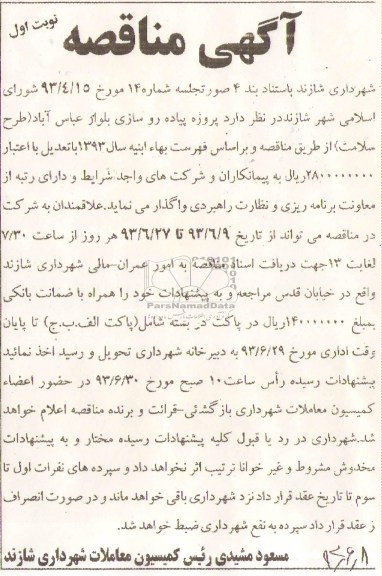 نوبت اول
آگهی مناقصه
شهرداری شازند باستناد بند ۴ صورتجلسه شماره۱۴ مورخ ۹۳/۴/۱۵ شورای
اسلامی شهر شازنددر نظر دارد پروژه پیاده رو سازی بلوار عباس آباد(طرح
سلامت) از طریق مناقصه و براساس فهرست بهاء ابنیه سال۱۳۹۳باتعدیل با اعتبار
۲۸۰۰۰۰۰۰۰۰ریال به پیمانکاران و شرکت های واجد شرایط و دارای رتبه از
معاونت برنامه ریزی و نظارت راهبردی واگذار می نماید.علاقمندان به شرکت
در مناقصه می تواند از تاریخ ۹۳/۶/۹ تا ۹۳/۶/۲۷ هر روز از ساعت ۷/۳۰
لغایت ۱۳جهت دریافت اسناد مناقصه به امور عمران-مالی شهرداری شازند
واقع در خیابان قدس مراجعه و به پیشنهادات خود را همراه با ضمانت بانکی
بمبلغ ۱۴۰۰۰۰۰۰۰ریال در پاکت در بسته شامل(پاکت الف.ب.ج) تا پایان
وقت اداری مورخ ۹۳/۶/۲۹ به دبیرخانه شهرداری تحویل و رسید اخذ نمائید
پیشنهادات رسیده رأس ساعت۱۰ صبح مورخ ۹۳/۶/۳۰ در حضور اعضاء
کمیسیون معاملات شهرداری بازگشائی-قرائت و برنده مناقصه اعلام خواهد
شد.شهرداری در رد یا قبول کلیه پیشنهادات رسیده مختار و به پیشنهادات
مخدوش مشروط و غیر خوانا ترتیب اثر نخواهد داد و سپرده های نفرات اول تا
سوم تا تاریخ عقد قرار داد نزد شهرداری باقی خواهد ماند و در صورت انصراف
ز عقد قرار داد سپرده به نفع شهرداری ضبط خواهد شد.
مسعود مشیدی رئیس کمیسیون معاملات شهرداری شازند
۹۳،۶،۸
ParsNamadData